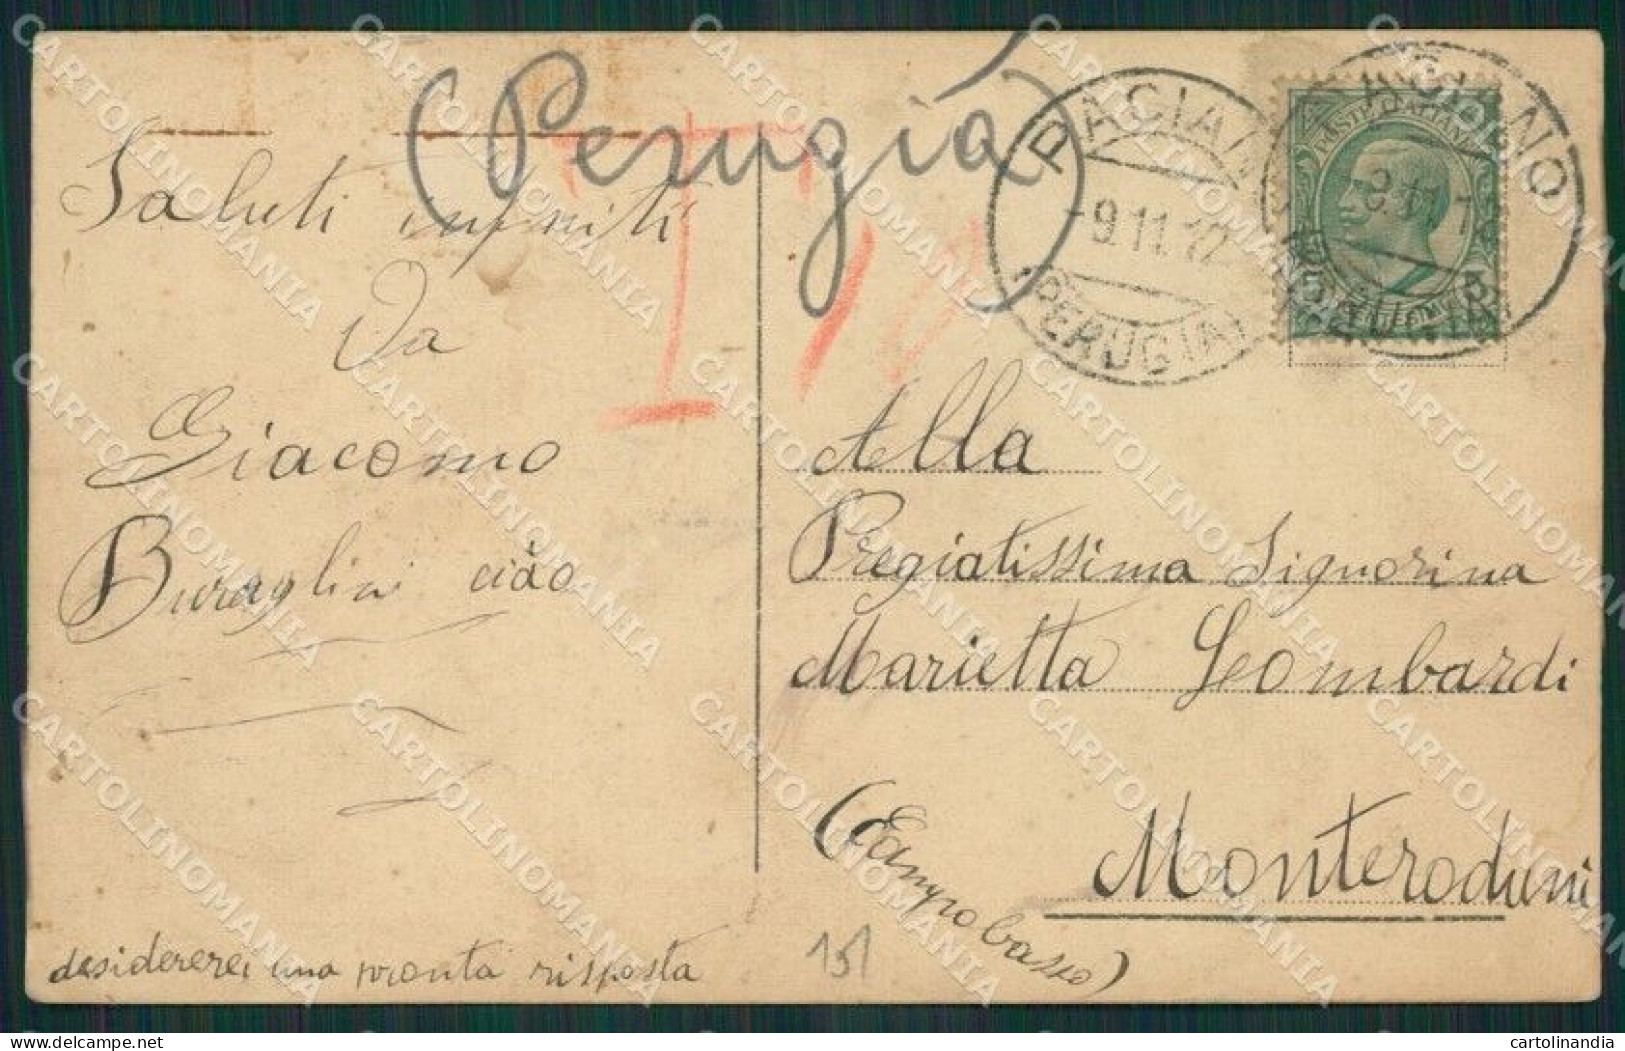 (Perugia)
PACIANO
9.11.12
(PERUGIA)
POSTE ITALIANE
Saluti infiniti
Da
Giacomo
Buraglini ciào
desidererei una pronta risposta
Alla
Pregiatissima Signorina
Marietta Lombardi
Monteroduni
(Campobasso)
151
CARTOLINOMANIA
cartolinandia